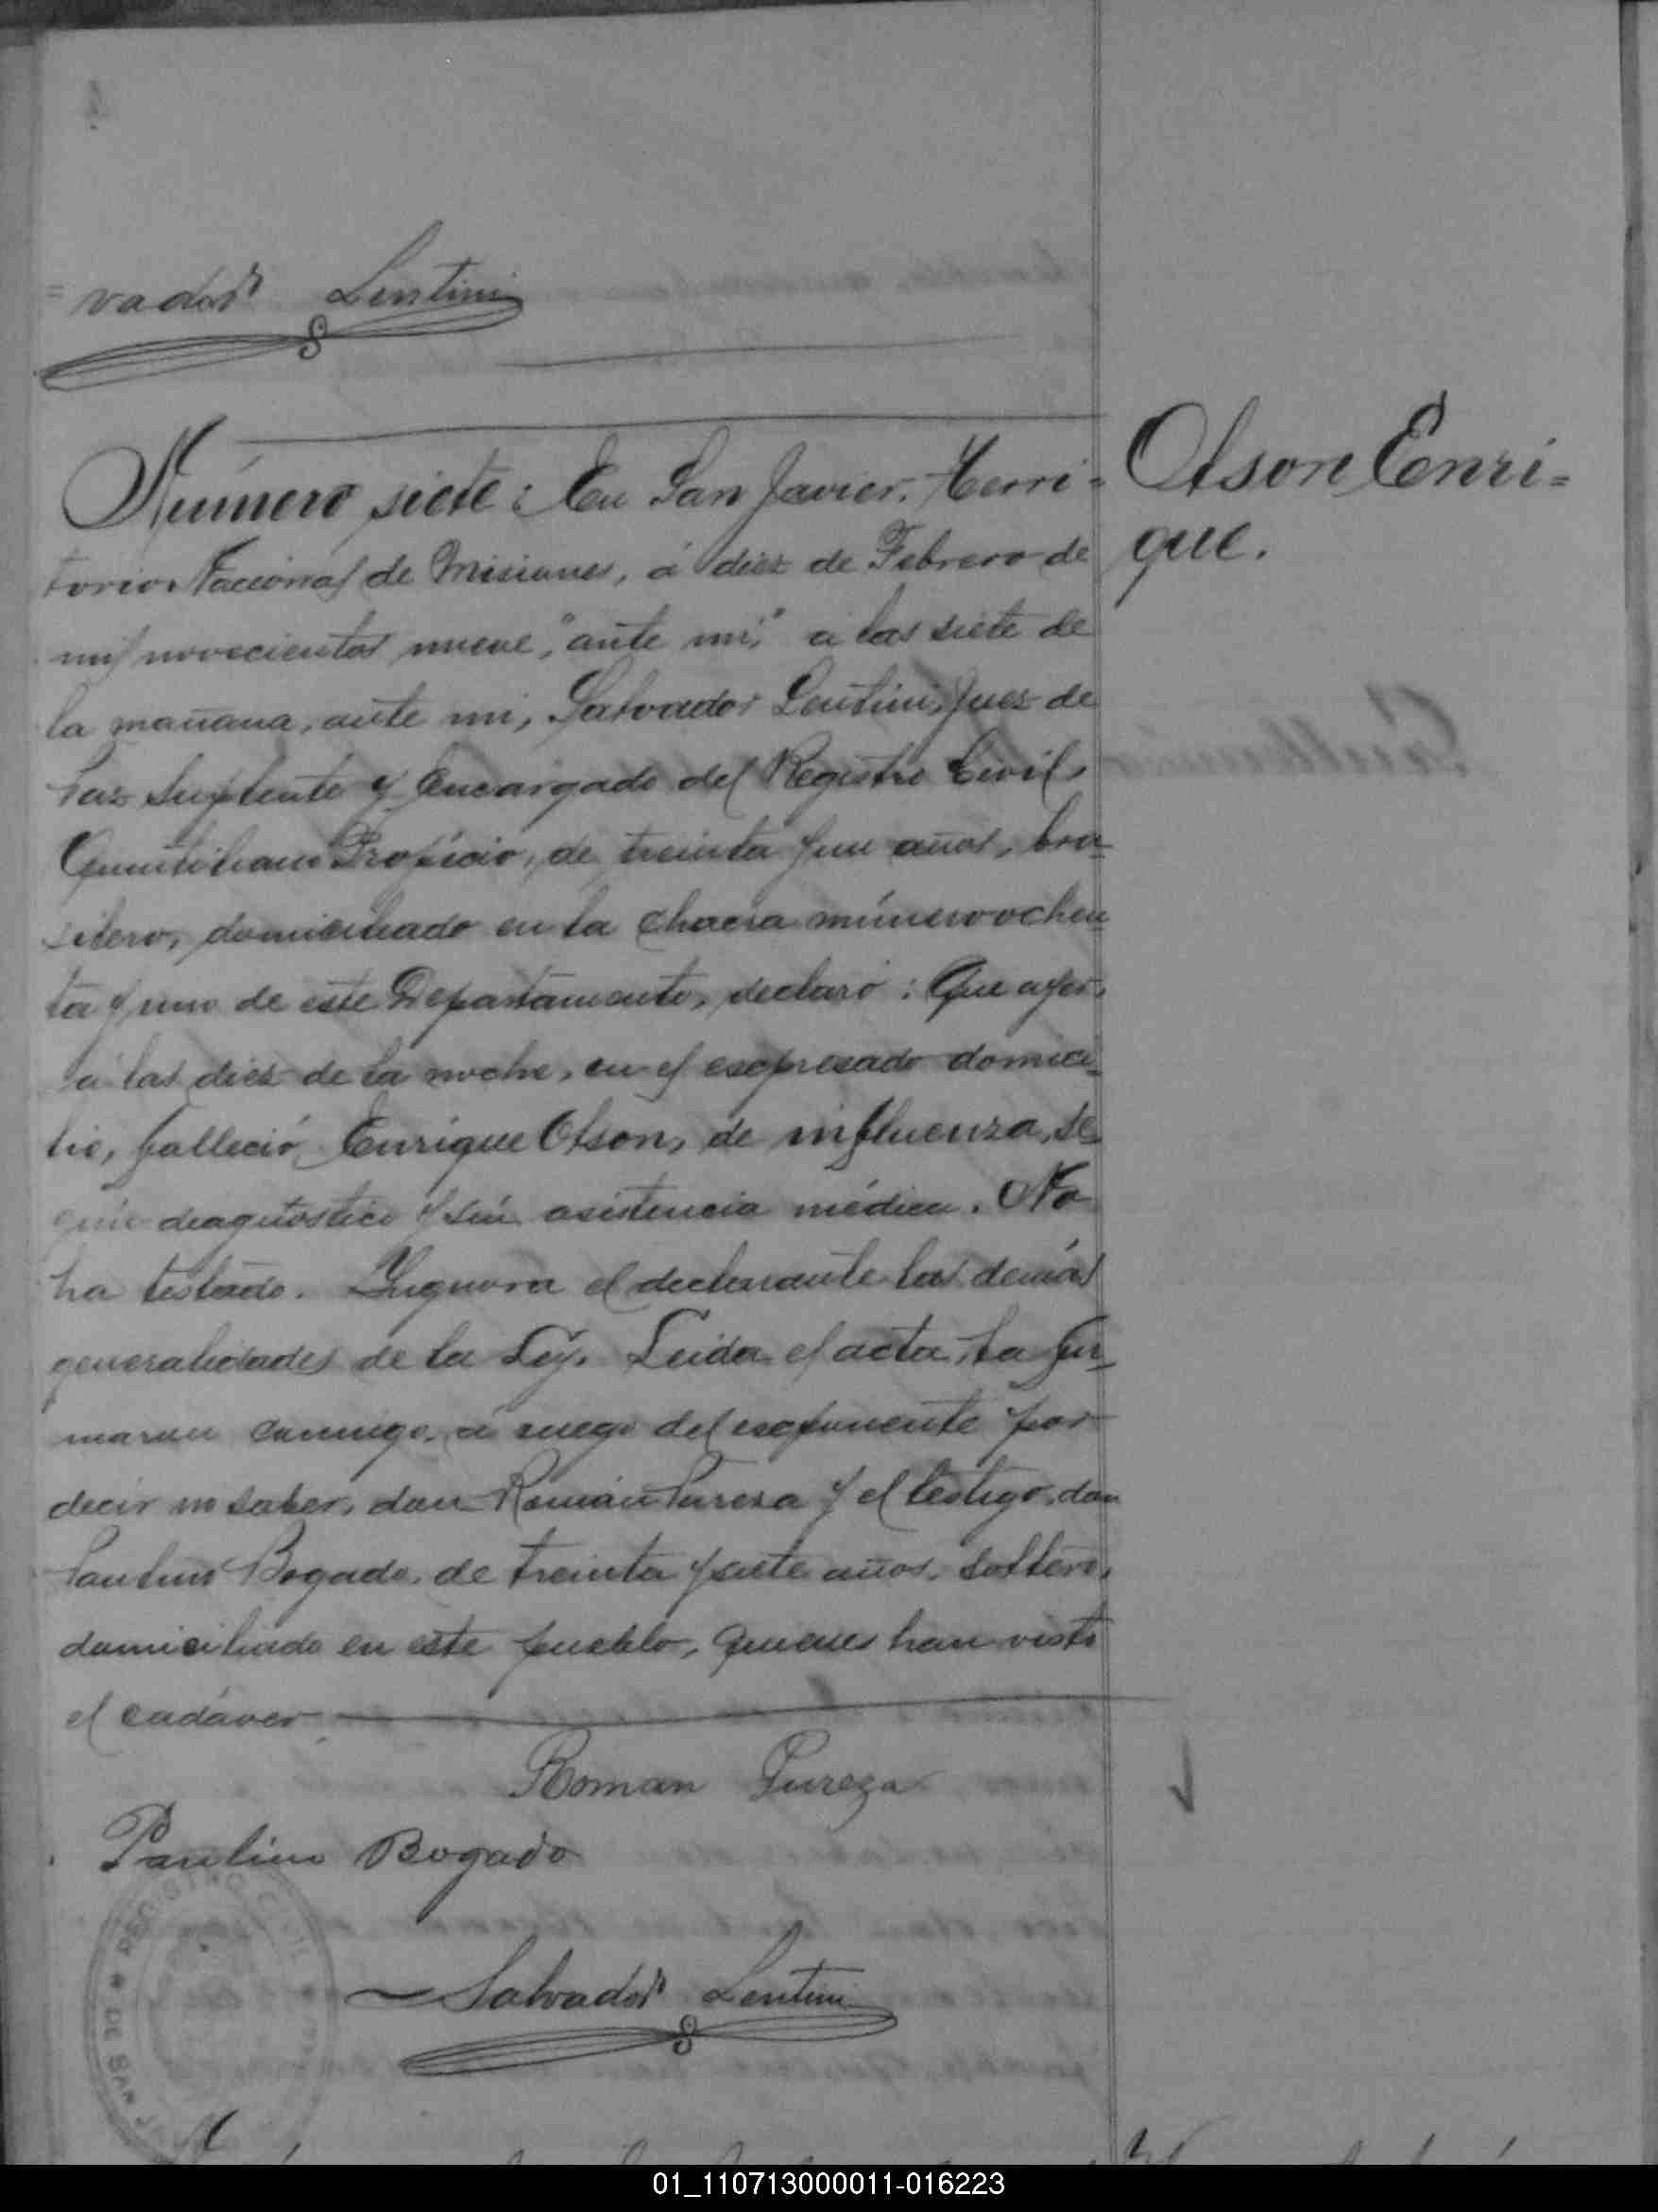 = vador Lentini
Número siete: En San Javier, Terri=
torio Nacional de Misiones, á diez de Febrero de
mil novecientos nueve, "ante mi," a las siete de
la mañana, ante mi, Salvador Lentini, Juez de
Paz Suplente y Encargado del Registro Civil,
Quintiliano Proficio, de treinta y un años, bra-
silero, domiciliado en la chacra número ochen-
ta y uno de este Departamento, declaró: Que ayer,
á las diez de la noche, en el expresado domici-
lio, falleció Enrique Olson, de influenza, se-
gún diagnóstico y sin asistencia médica. No
ha testado. Ygnora el declarante las demás
generalidades de la Ley. Leida el acta, la fir-
maron conmigo, á ruego del exponente por
decir no saber, don Román Pureza y el testigo, don
Paulino Bogado, de treinta y siete años, soltero,
domiciliado en este pueblo, quienes han visto
el cadáver
Olson Enri=
que.
Roman Pureza
Paulino Bogado
Salvador Lentini
REGISTRO CIVIL
DE SAN J
01_110713000011-016223